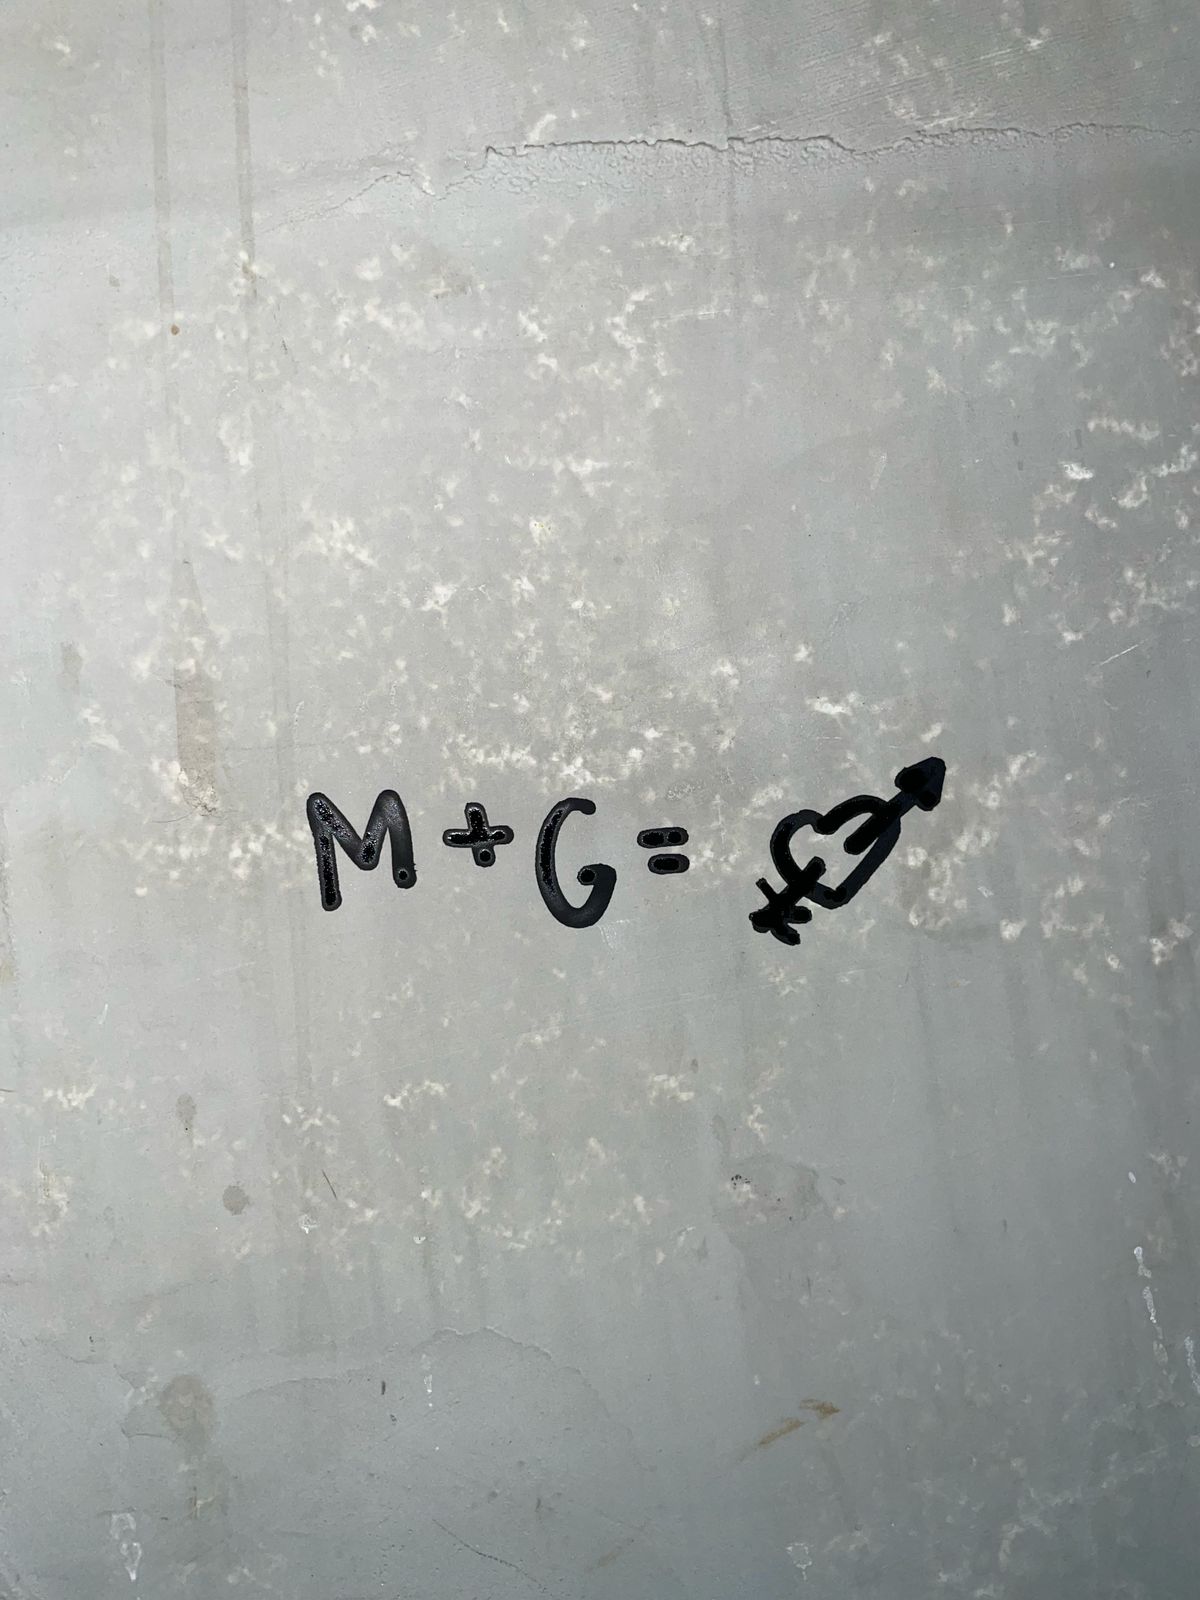 M + G =